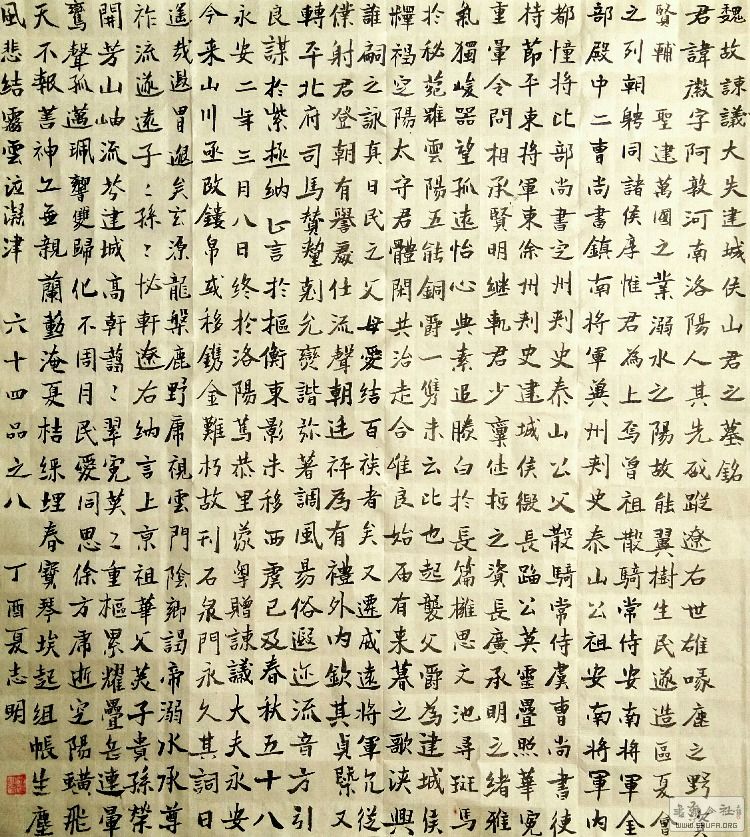 魏故諫議大夫建城侯山君之墓銘
君諱徽字阿敦河南洛陽人其先啟蹤遼右世雄啄鹿之野
賢輔聖建萬國之業溺水之陽故能翼樹生民遂造區夏會
之列朝聘同諸侯庠惟君為上焉曾祖散騎常侍安南將軍金
部殿中二曹尚書鎮南將軍冀州刺史泰山公祖安南將軍内
都幢將比部尚書定州刺史泰山公父散騎常侍虞曹尚書使
持節平東將軍東徐州刺史建城侯徽長臨公英靈疊照華冕
重暈令問相承賢明繼軌君少稟仕哲之資長廣承明之緒雅
氣獨峻器望孤遠怡心典素追勝白於長篇攡思文池尋斑馬
於秘菀雖雲陽五能銅爵一雙未云比也起襲父爵為建城侯
襌褐定陽太守君體閑共治走合唯良始届有来暮之歌浹興
誰嗣之詠真曰民之父母愛結百族者矣又遷威遠將軍冗從
僕射君登朝有譽履仕流聲朝廷祥為有禮外内欽其貞槩又
轉平北府司馬贊釐剋允燮諧弥著調風易俗遐迩流音方引
良謀於紫極納正言於樞衡東影未移西虞已及春秋五十八
永安二年三月八日終於洛陽篤恭里蒙卑贈諫議大夫永安
今来山川亟改鏤帛或移鐫金難朽故刊石泉門永久其詞曰
遥哉遐冑邈矣玄源龍槃鹿野庸視雲門陰鄉謁帝溺水承尊
祚流遂遠子ミ孫ミ怭軒遼右納言上京祖華父羙子貴孫榮
開芳山岫流芩建城高軒藹ミ翠冕英ミ重樞累耀疊岳連暈
鶱聲孤邁珮響雙歸化不周月民愛同思俆方肅逝定陽蟥飛
天不報善神乂無親蘭勤淹夏桔綵埋春寳琴埃起組帳生塵
風悲結霧雲泣凝津 六十四品之八 丁酉夏志明
WWW.SHUFA.ORG